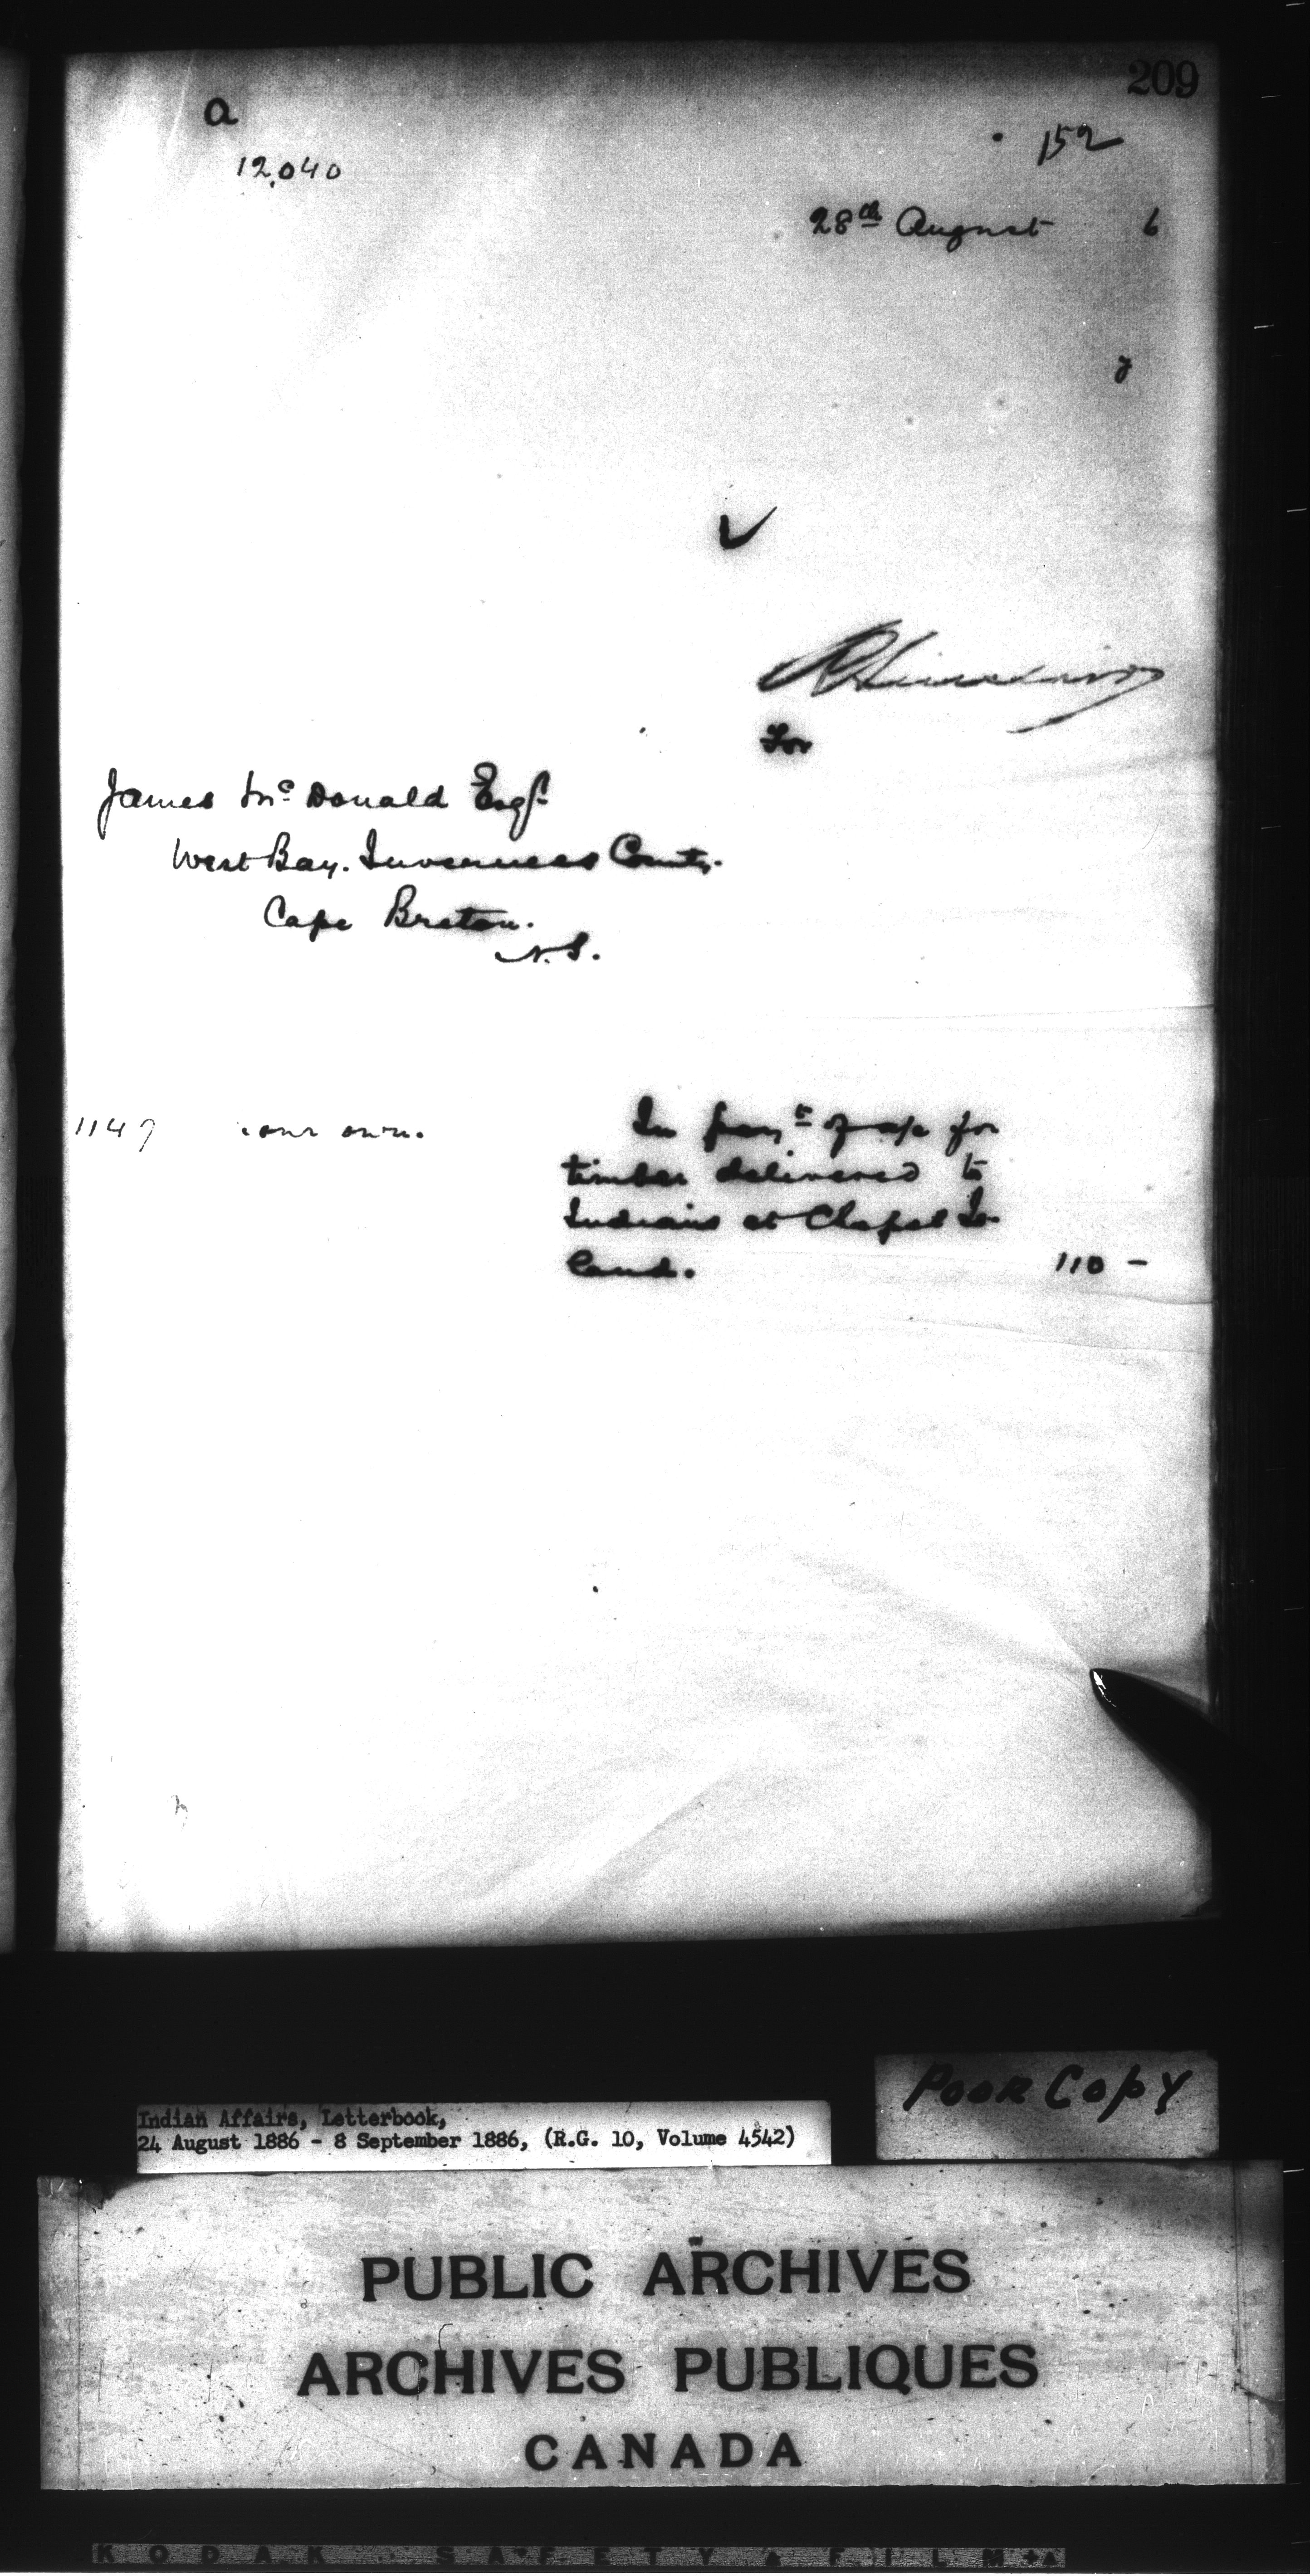 209
a
152
12,040
28th August 6
y
For
James Mc Donald Esqr.
West Bay. Inverness County.
Cape Breton.
N.S.
1147 your own. In paymt of a/c for
timber delivered to
Indians at Chapel Is-
land. 110 -
Poor Copy
Indian Affairs, Letterbook,
24 August 1886 - 8 September 1886, (R.G. 10, Volume 4542)
PUBLIC ARCHIVES
ARCHIVES PUBLIQUES
CANADA
KODAK SAFETY FILM